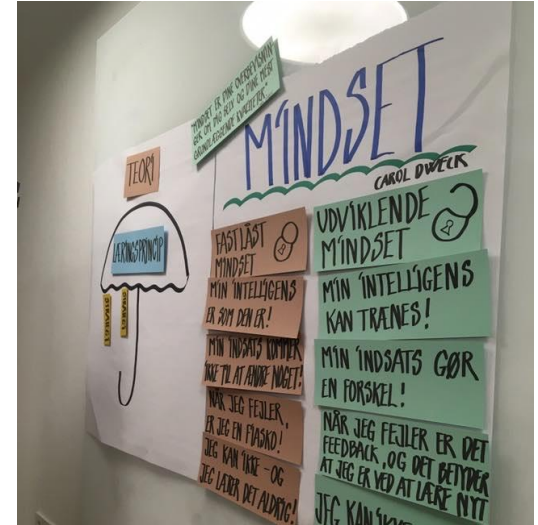 "MINDSET ER DINE OVERBEVISNIN
GER OM DIG SELV OG DINE MEST
GRUNDLÆGGENDE KVALITETER."
MINDSET
CAROL DWECK
TEORI
LÆRINGSPRINCIP
STRATEGI
STRATEGI
FASTLÅST
MINDSET
MIN INTELLIGENS
ER SOM DEN ER!
MIN INDSATS KOMMER
IKKE TIL AT ÆNDRE NOGET!
NÅR JEG FEJLER,
ER JEG EN FIASKO!
JEG KAN IKKE - OG
JEG LÆRER DET ALDRIG!
UDVIKLENDE
MINDSET
MIN INTELLIGENS
KAN TRÆNES!
MIN INDSATS GØR
EN FORSKEL!
NÅR JEG FEJLER ER DET
FEEDBACK, OG DET BETYDER
AT JEG ER VED AT LÆRE NYT
JEG KAN IKKE